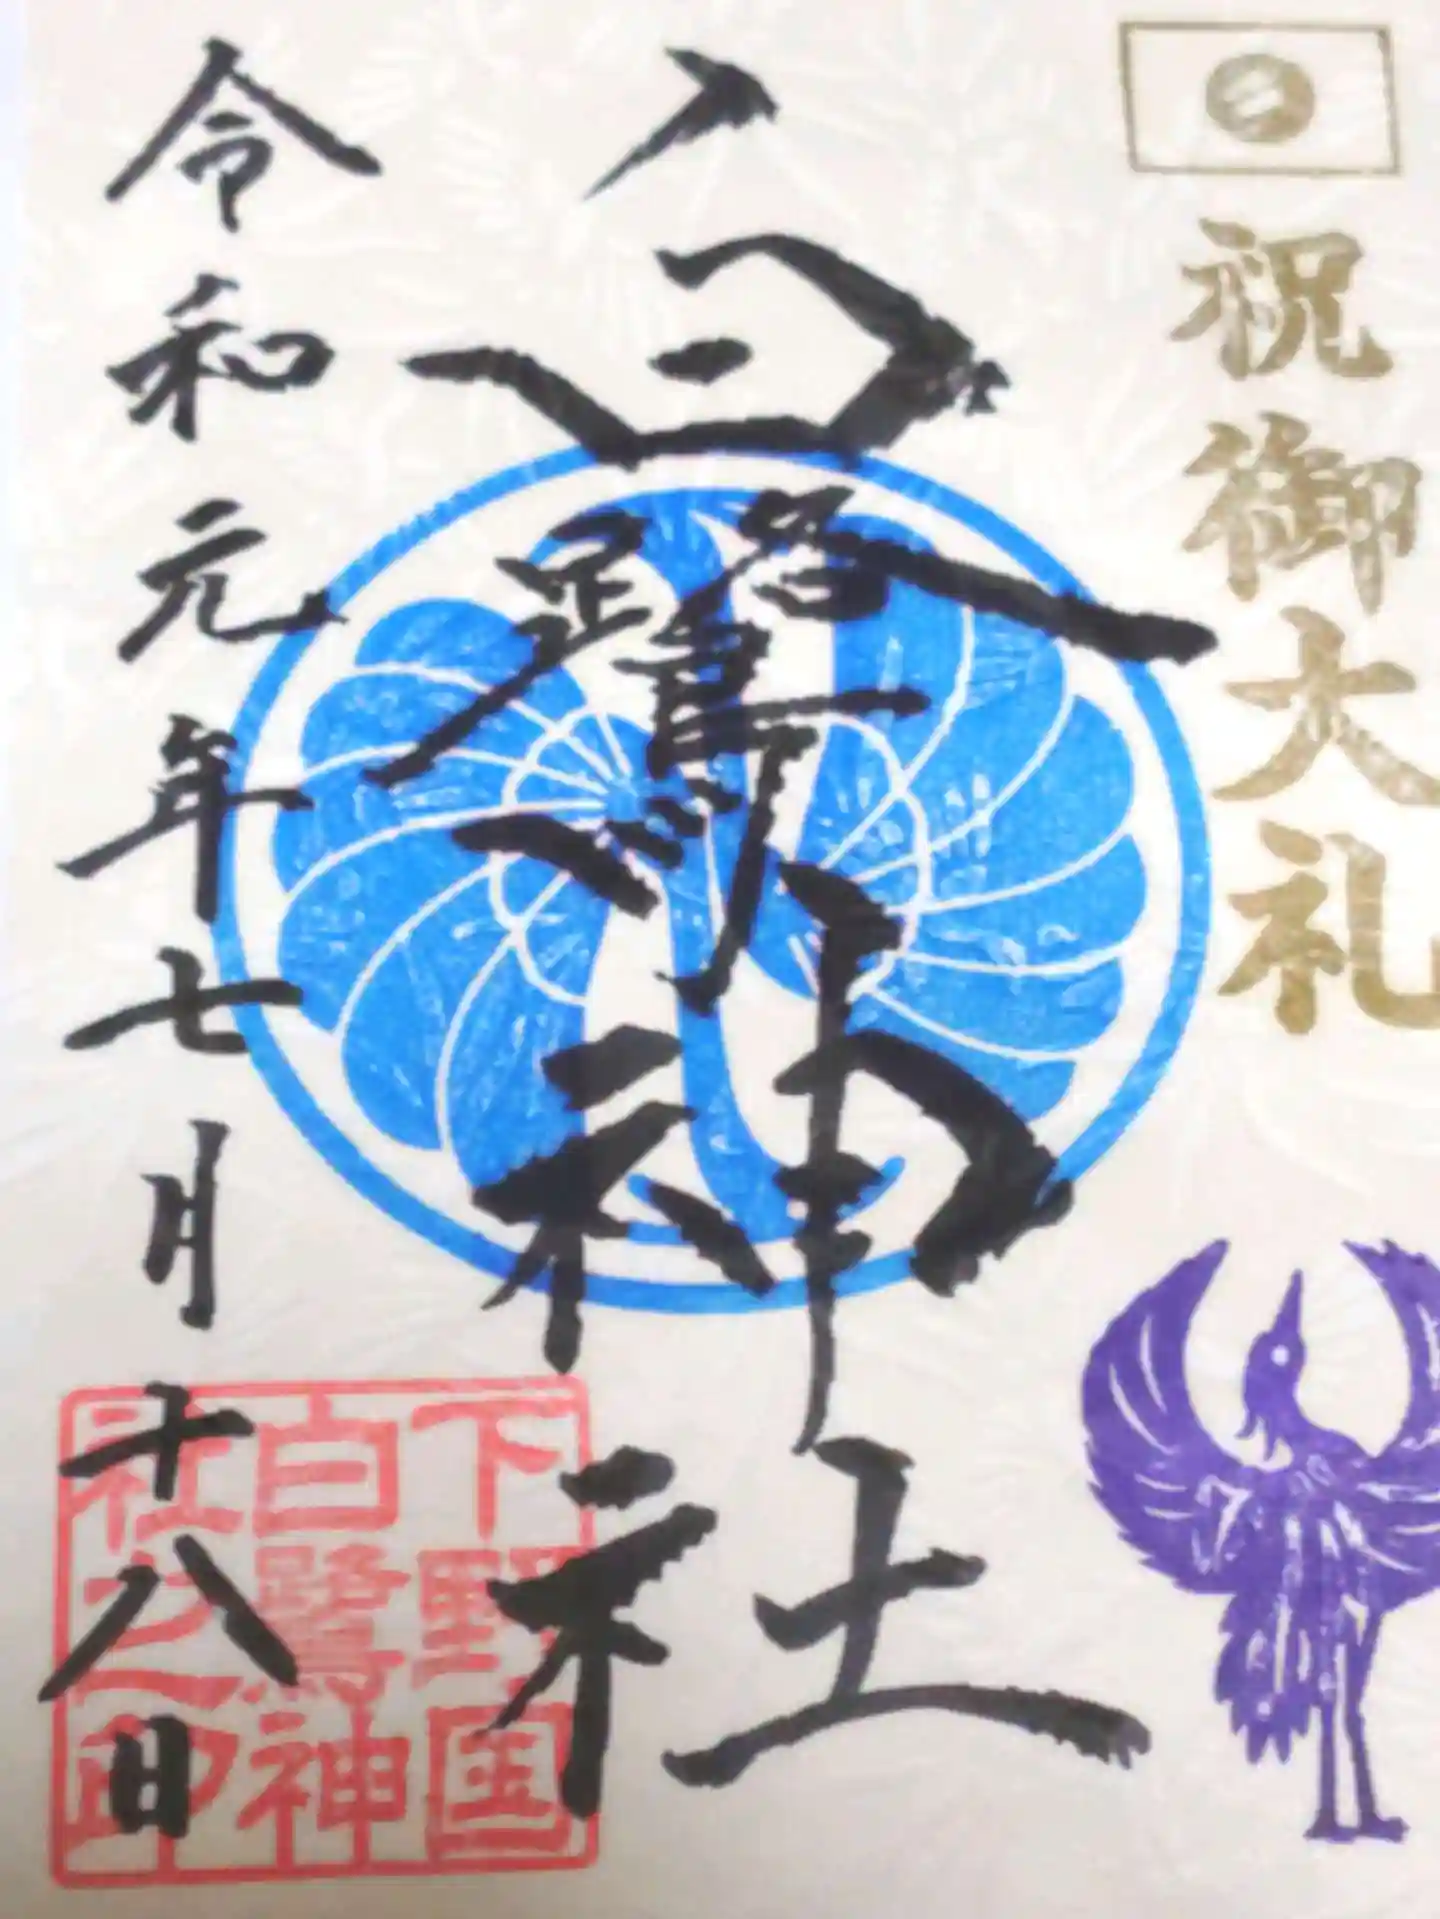 祝御大礼
白鷺神社
令和元年七月十八日
下野国
白鷺神
社之印